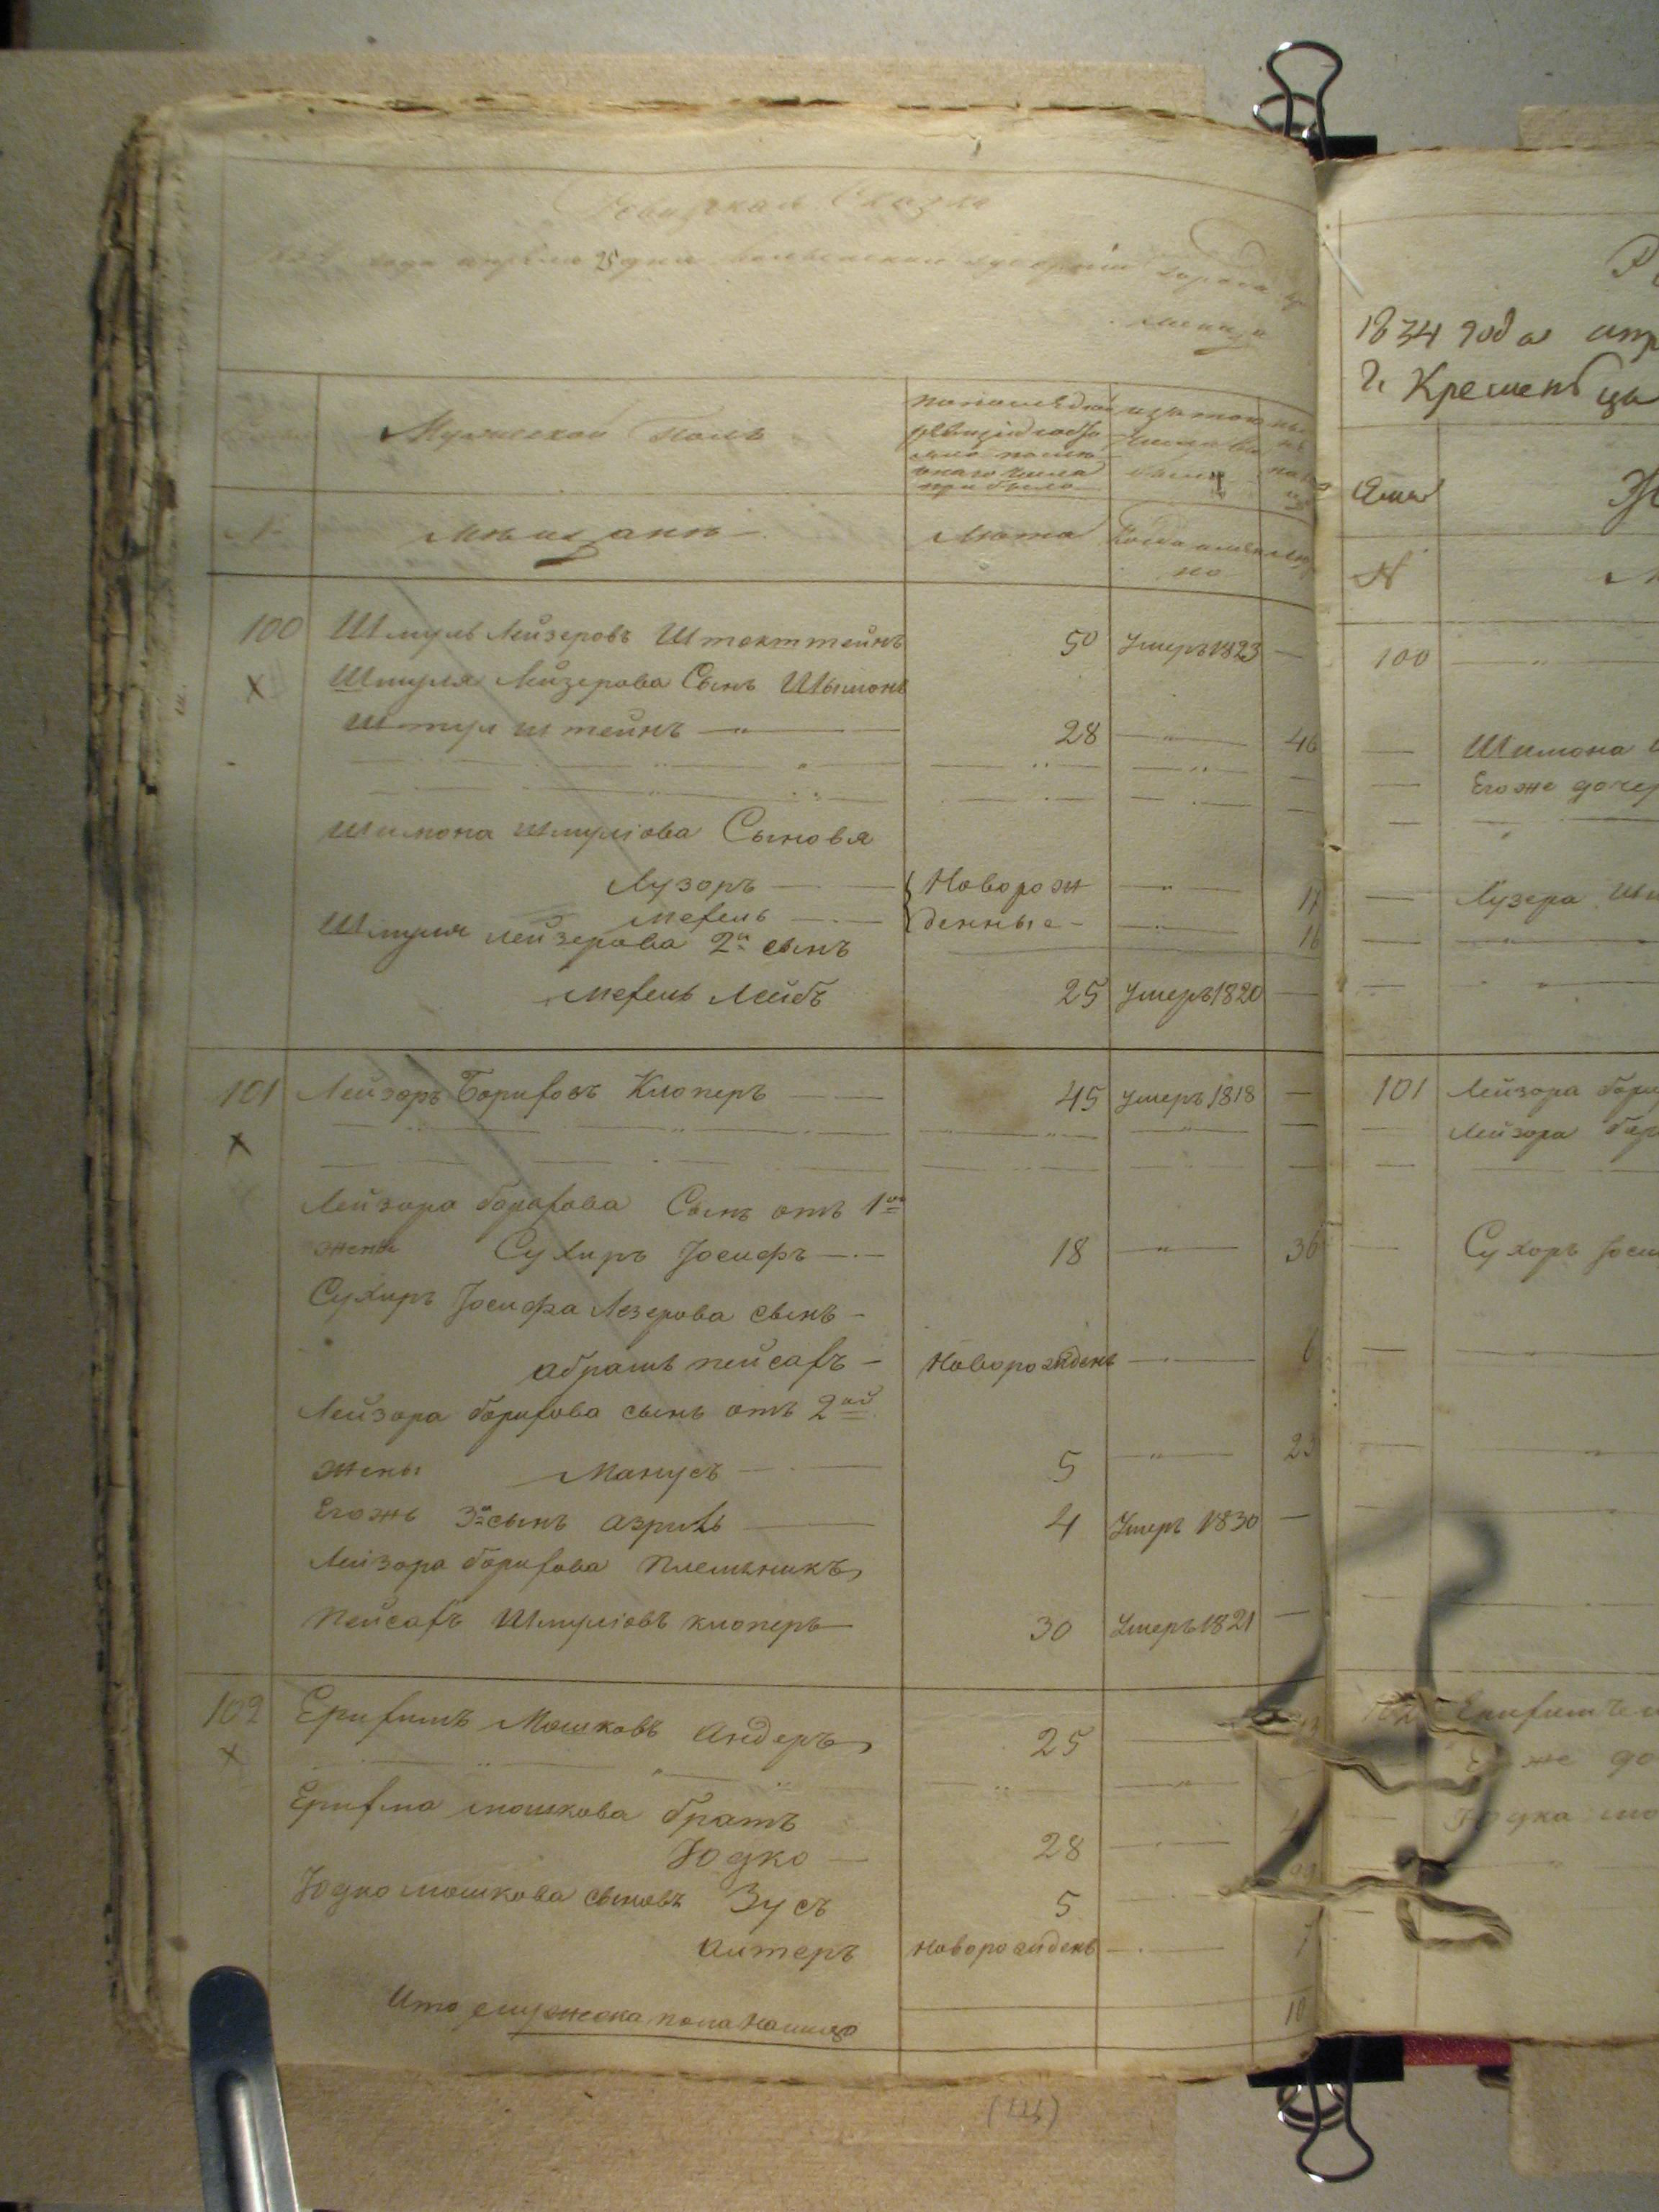 Ревизская Сказка
1834 года апреля 25 дня Волынской губернии города
менца
Мужеской полъ
по последней
ревизіи состо
яло и после
онаго числа
прибыло
изъ того
числа вы
было
N
Мѣщанѣ
Лѣта
Когда имен
но
100 Шмуль Лейзеровъ Штокштейнъ 50 Умеръ 1823 —
Х Шмуля Лейзерова Сынъ Шымонъ
штейнъ — " — 28 — " — 46
Шимона Шмуліова Сыновя
Лузоръ — Новорож — " — 17
Мехель — денные — — " — 16
Шмуля Лейзерова 2й сынъ
Мехель Лейбъ 25 Умеръ 1820 —
101 Лейзоръ Борухозъ Клоперъ — 45 Умеръ 1818 —
Х
Лейзора борахова Сынъ отъ 1ой
жены Сухиръ Іосифъ — 18 — " — 36
Сухиръ Іосифа Лезерова сынъ —
абрамъ пейсахъ — Новорожденъ — 6
Лейзора борухова сынъ отъ 2ой
жены Манусъ — 5 — " — 23
Егожъ 3й сынъ азриль — 4 Умеръ 1830 —
Лейзора борухова Племѣникъ
Пейсахъ Шмуліовъ клоперъ — 30 Умеръ 1821 —
102 Ерухимъ Мошковъ Андеръ 25 —
Х
Ерухма мошкова братъ
Юдко — 28 —
Юдко мошкова сыновъ Зусъ 5 —
Алтеръ Новорожденъ — 7
Итого мужеска пола налицо 10
1834 года апр
г. Кременца
N
100 — " —
— Шимона
— Егоже дочер
— Лузера Шм
101 Лейзора бору
— Лейзора бор
— Сухоръ Іоси
102 Ерухимъ м
Егоже до
Юдка мо
(111)